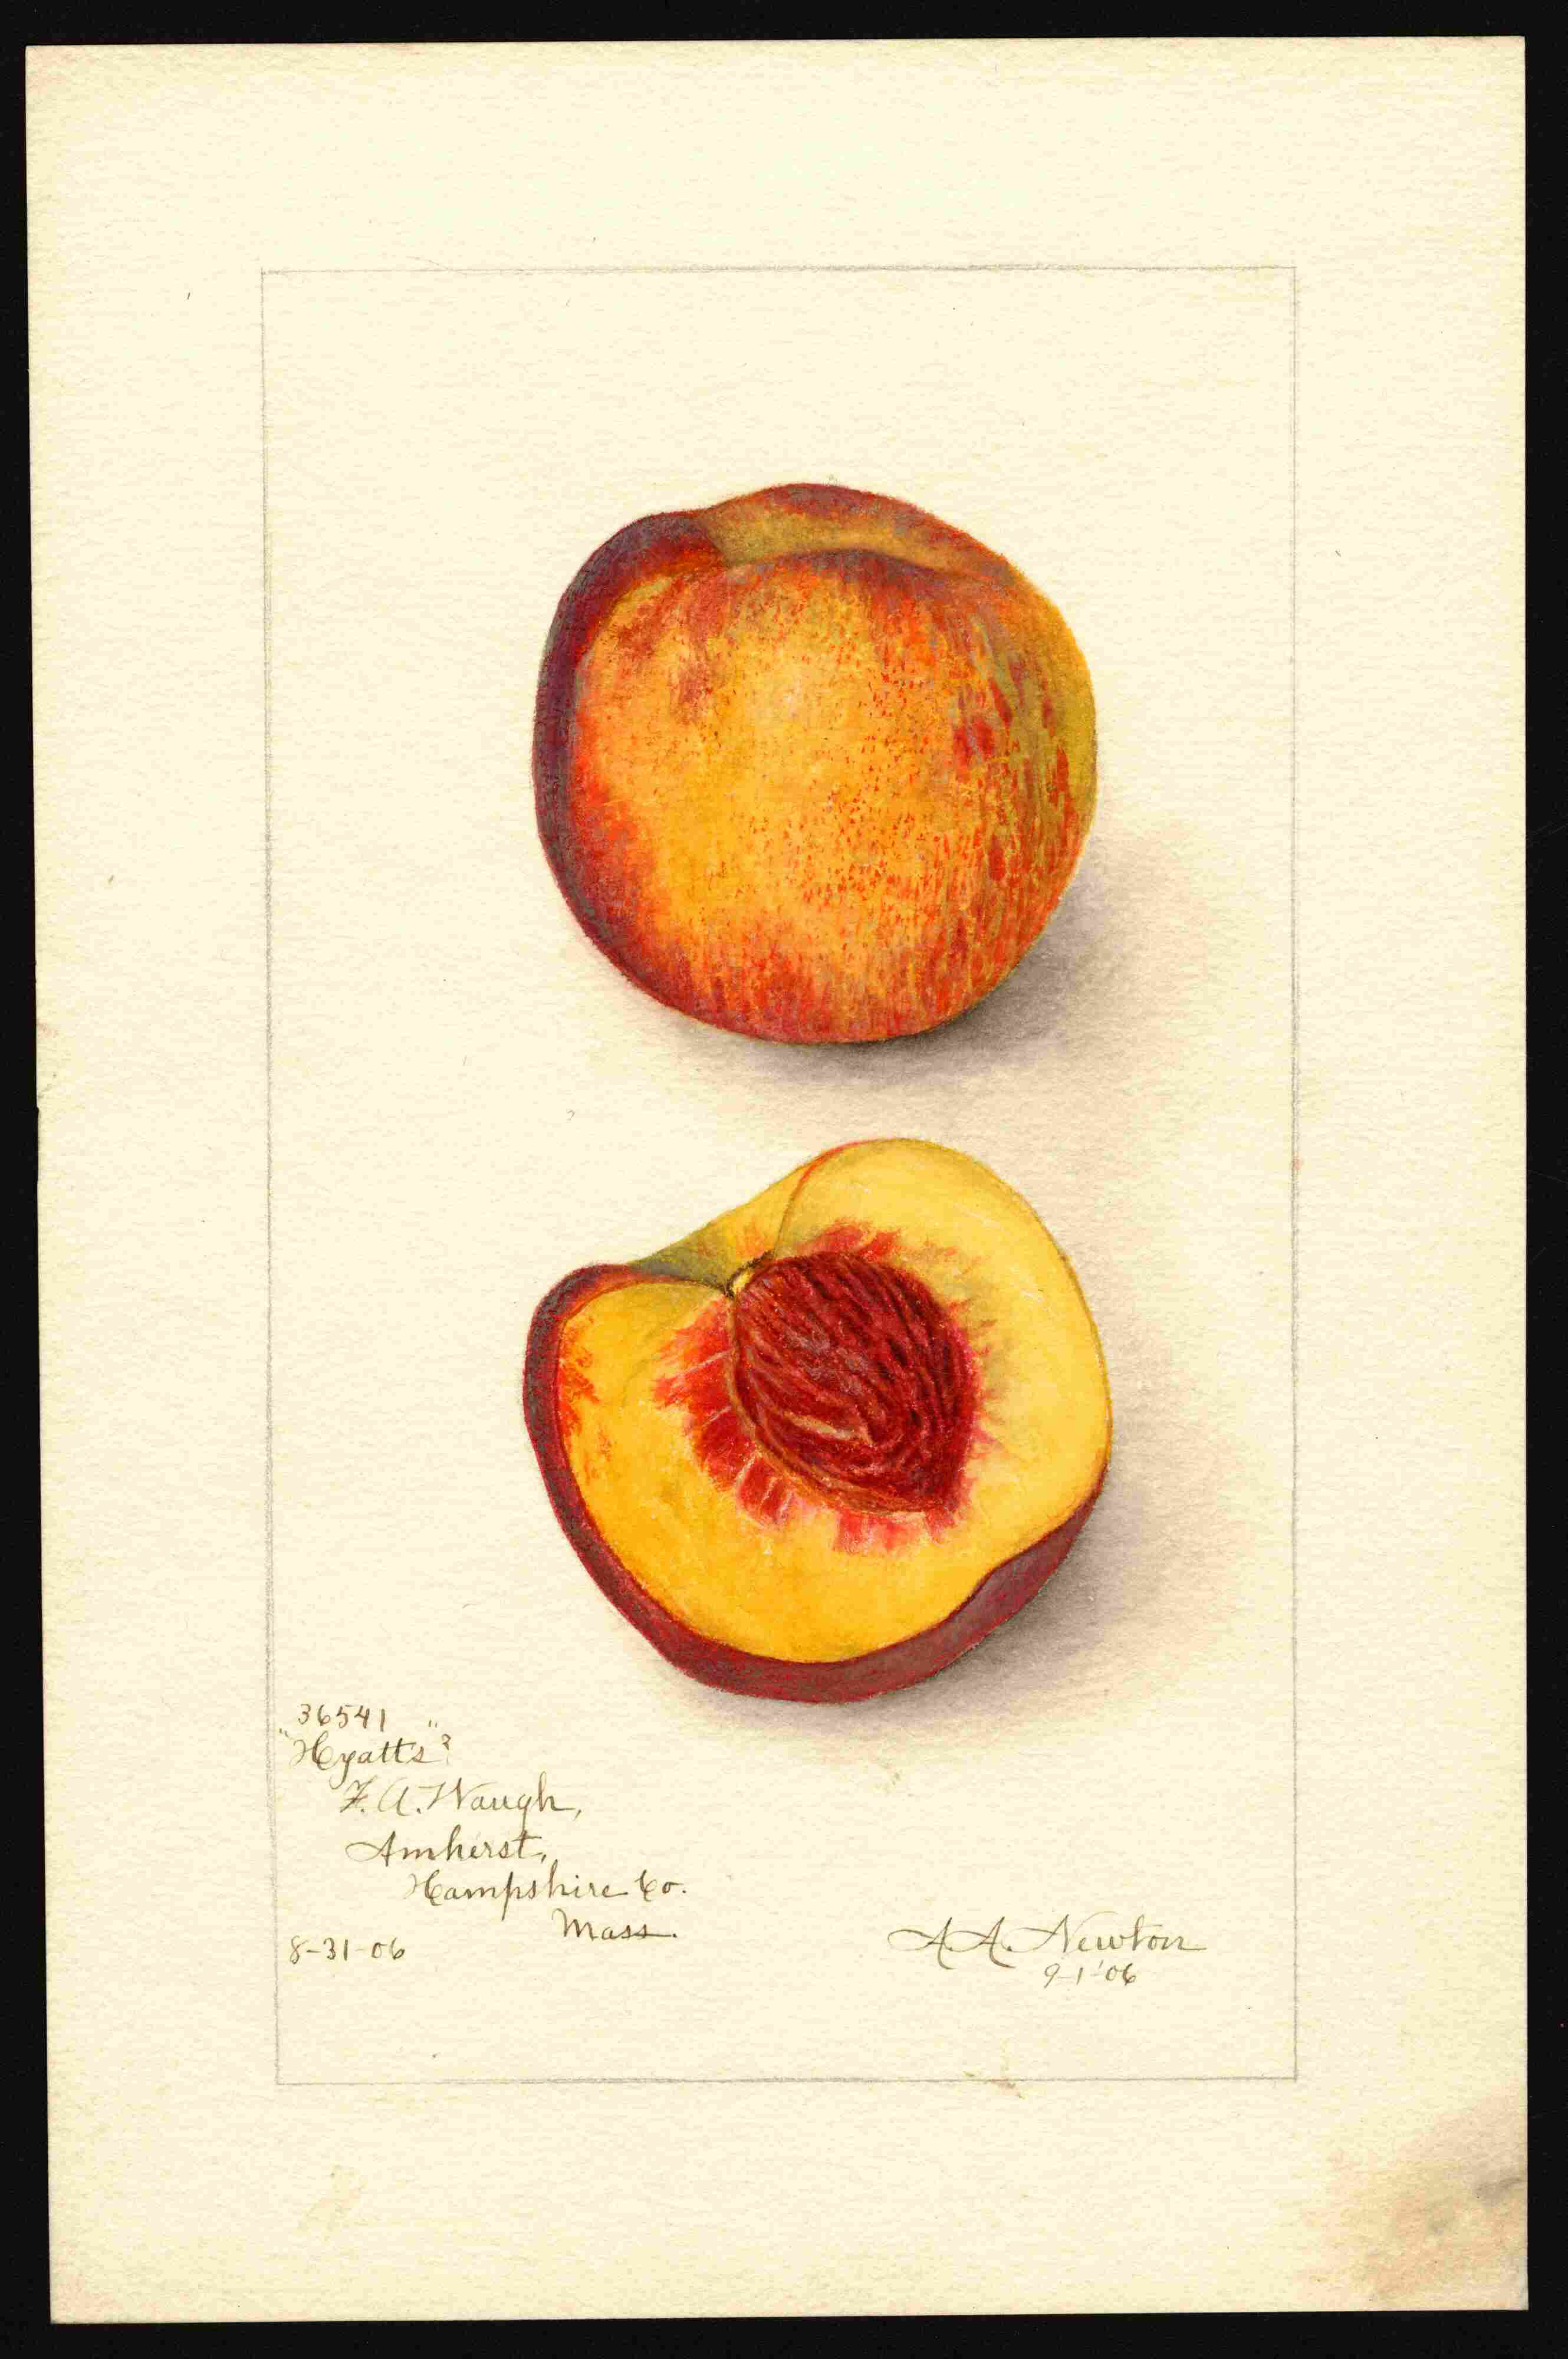 36541
"Hyatt's"?
F. A. Waugh,
Amherst,
Hampshire Co.
Mass.
8-31-06
A. A. Newton
9-1-'06